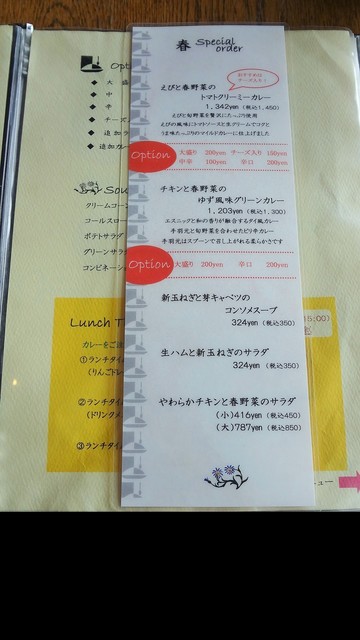 春 Special order
おすすめの
チーズ入り!
えびと春野菜の
トマトクリーミーカレー
1,342yen (税込1,450)
えびと旬野菜を贅沢にたっぷり使用
えびの風味にトマトソースと生クリームでコクと
うま味たっぷりのマイルドカレーに仕上げました
Option
大盛り 200yen チーズ入り 150yen
中辛 100yen 辛口 200yen
チキンと春野菜の
ゆず風味グリーンカレー
1,203yen (税込1,300)
エスニックと和の香りが融合するタイ風カレー
手羽元と旬野菜を合わせたピリ辛カレー
手羽元はスプーンで召し上がれる柔らかさです
Option
大盛り 200yen 辛口 200yen
新玉ねぎと芽キャベツの
コンソメスープ
324yen (税込350)
生ハムと新玉ねぎのサラダ
324yen (税込350)
やわらかチキンと春野菜のサラダ
(小)416yen (税込450)
(大)787yen (税込850)
Opt
◆ 大盛
◆ 中
◆ 辛
◆ チーズ
◆ 追加
◆ 追加
Sou
クリームコー
コールスロー
ポテトサラダ
グリーンサラ
コンビネーシ
Lunch T
カレーをご注
①ランチタイ
(りんごドレ
②ランチタイ
(ドリンクメ
③ランチタイ
15:00)
ュー